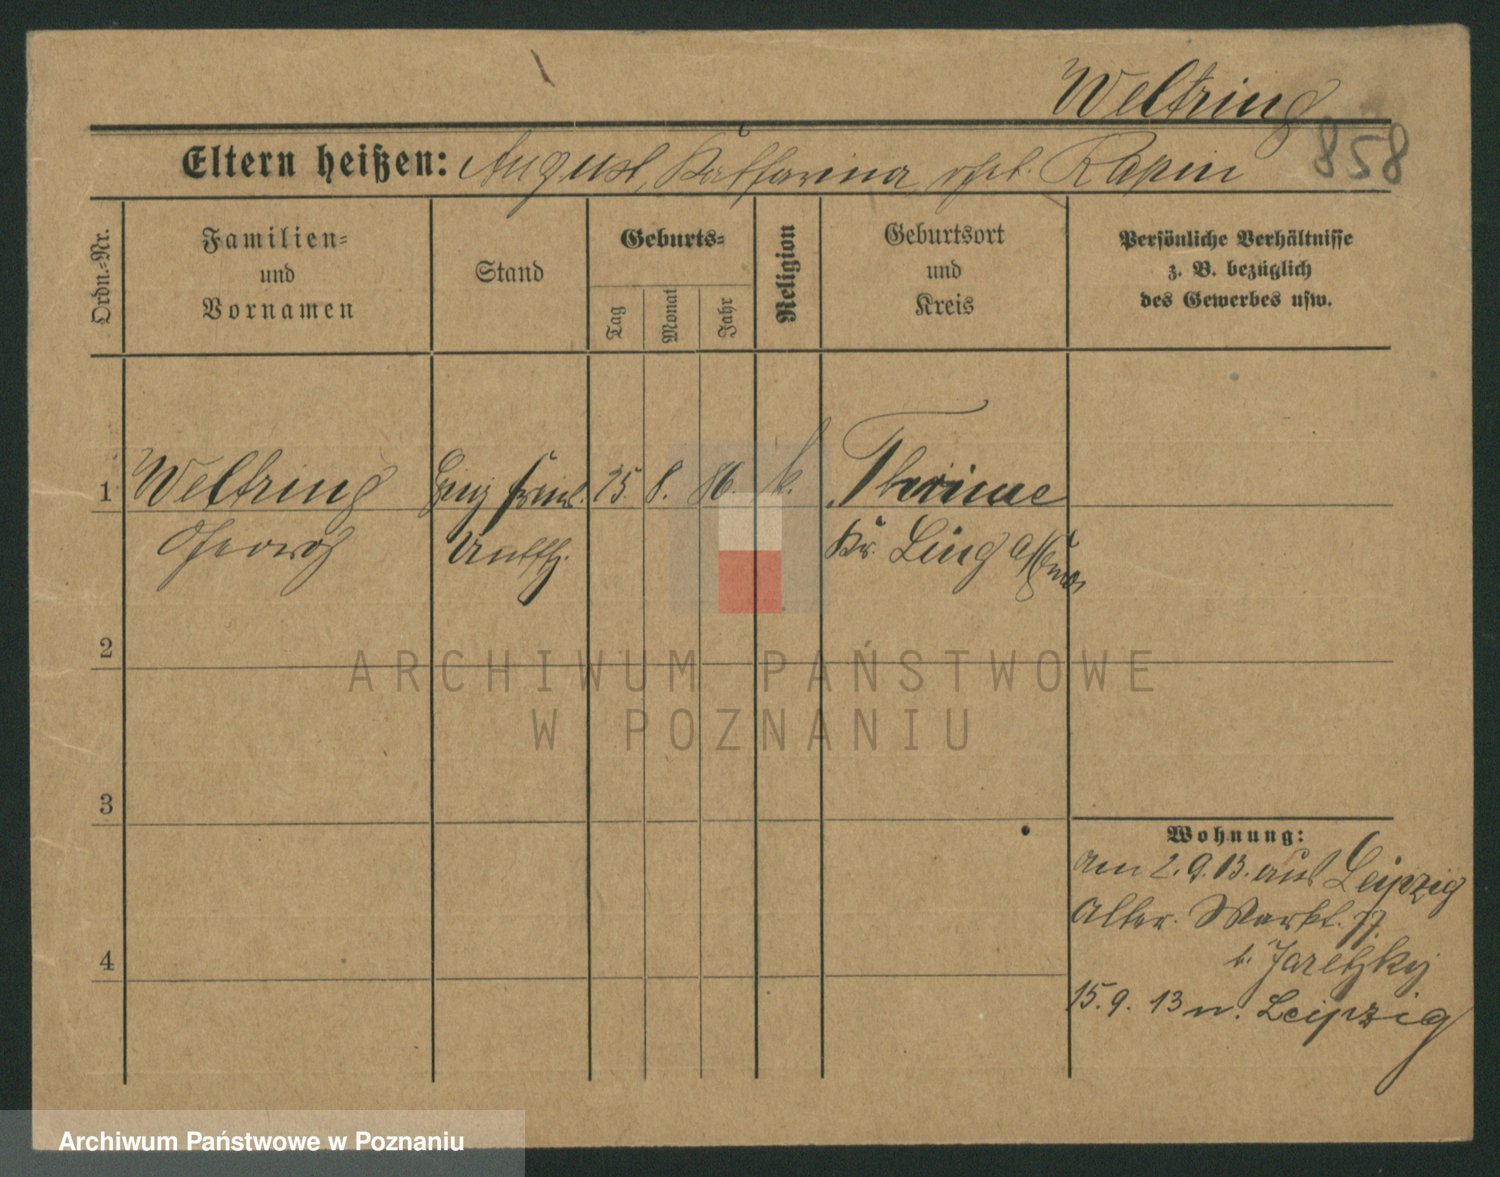 Weltring
858
Eltern heißen: August, Katharina gbt. Rapin
Ordn.-Nr.
Familien-
und
Vornamen
Stand
Geburts-
Tag
Monat
Jahr
Religion
Geburtsort
und
Kreis
Persönliche Verhältnisse
z. B. bezüglich
des Gewerbes usw.
1
Weltring
25. 8. 86. k.
Thuine
Georg
Kr. Ling
2
3
4
Wohnung:
am 2.9.13. aus Leipzig
Alter. Markt. 77
b. Jaretzky
15.9. 13 n. Leipzig
ARCHIWUM PAŃSTWOWE
W POZNANIU
Archiwum Państwowe w Poznaniu